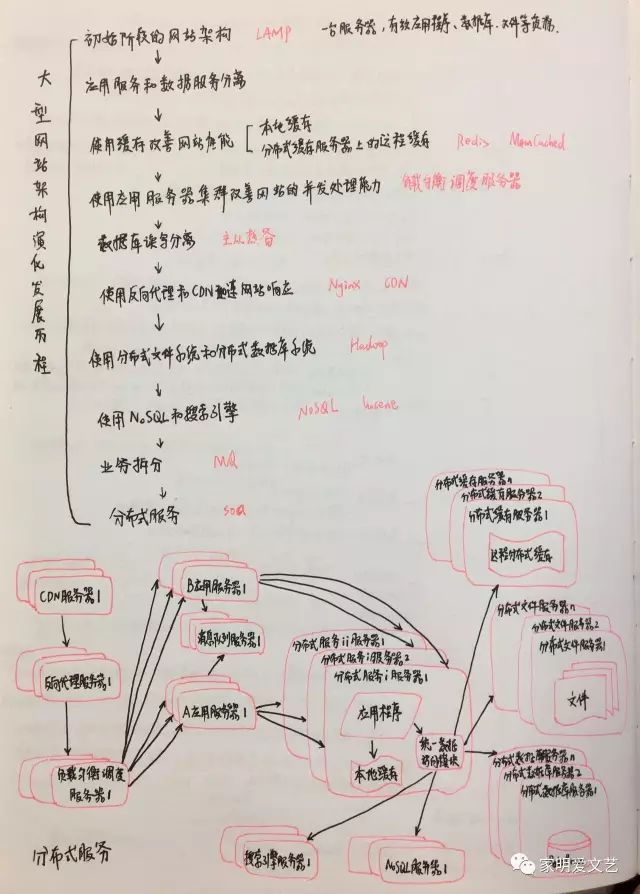 大型网站架构演化发展历程
初始阶段的网站架构 LAMP 一台服务器,有效应用程序、数据库、文件等资源.
应用服务和数据服务分离
使用缓存改善网站性能 本地缓存
分布式缓存服务器上的远程缓存 Redis MemCached
使用应用服务器集群改善网站的并发处理能力 负载均衡调度服务器
数据库读写分离 主从热备
使用反向代理和CDN加速网站响应 Nginx CDN
使用分布式文件系统和分布式数据库系统 Hadoop
使用NoSQL和搜索引擎 NoSQL lucene
业务拆分 MQ
分布式服务 soa
分布式缓存服务器n
分布式缓存服务器2
分布式缓存服务器1
远程分布式缓存
CDN服务器1
B应用服务器1
消息队列服务器1
反向代理服务器1
A应用服务器1
负载均衡调度
服务器1
分布式服务ii服务器1
分布式服务i服务器2
分布式服务i服务器1
应用程序
本地缓存
统一数据
访问模块
分布式文件服务器n
分布式文件服务器2
分布式文件服务器1
文件
分布式数据库服务器n
分布式数据库服务器2
分布式数据库服务器1
搜索引擎服务器1
NoSQL服务器1
分布式服务
家明爱文艺